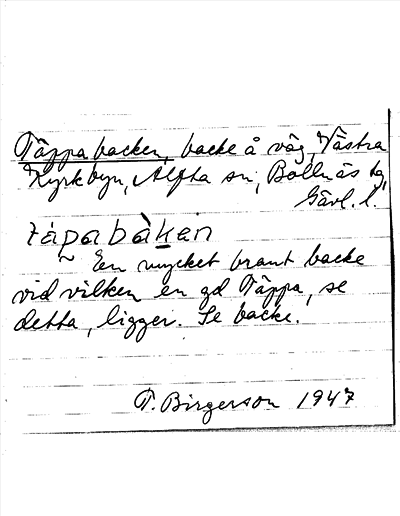 Täppabacken, backe å väg, Västra
Kyrkbyn, Alfta sn, Bollnäs tg,
Gävl. l.
täpabàkan
En mycket brant backe
vid vilken en gd Täppa, se
detta, ligger. Se backe.
T. Birgerson 1947